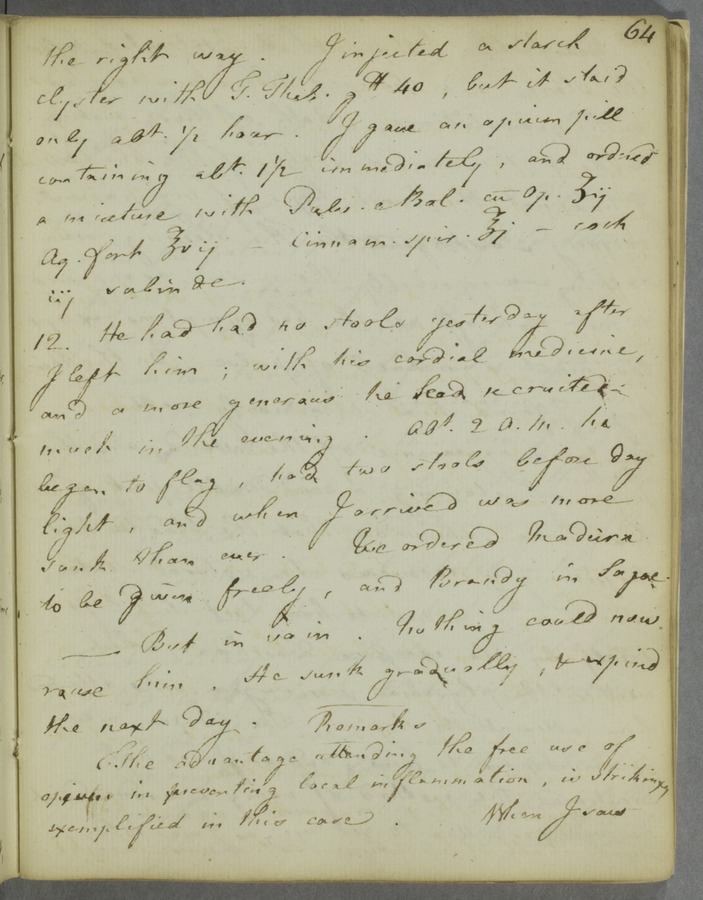 64
the right way. I injected a starch
clyster with T. Theb. gtt 40, but it staid
only abt. 1/2 hour. I gave an opium pill
containing abt. 1 1/2 immediately, and ordred
a mixture with Pulv. e Bol. cu Op. ʒij
Aq. font ℥vij — Cinnam. spir. ℥j — coch
iij subinde.
12. He had had no stools yesterday after
I left him; with his cordial medicine,
and a more generous he had recruited
much in the evening. Abt. 2 A.M. he
began to flag, had two stools before day
light, and when I arrived was more
sunk than ever. We ordered Madeira
to be given freely, and Brandy in Sagoe.
— But in vain. Nothing could now
rouse him. He sunk gradually, & expired
the next day. Remarks
The advantage attending the free use of
opium in preventing local inflammation, is strikingly
exemplified in this case. When I saw